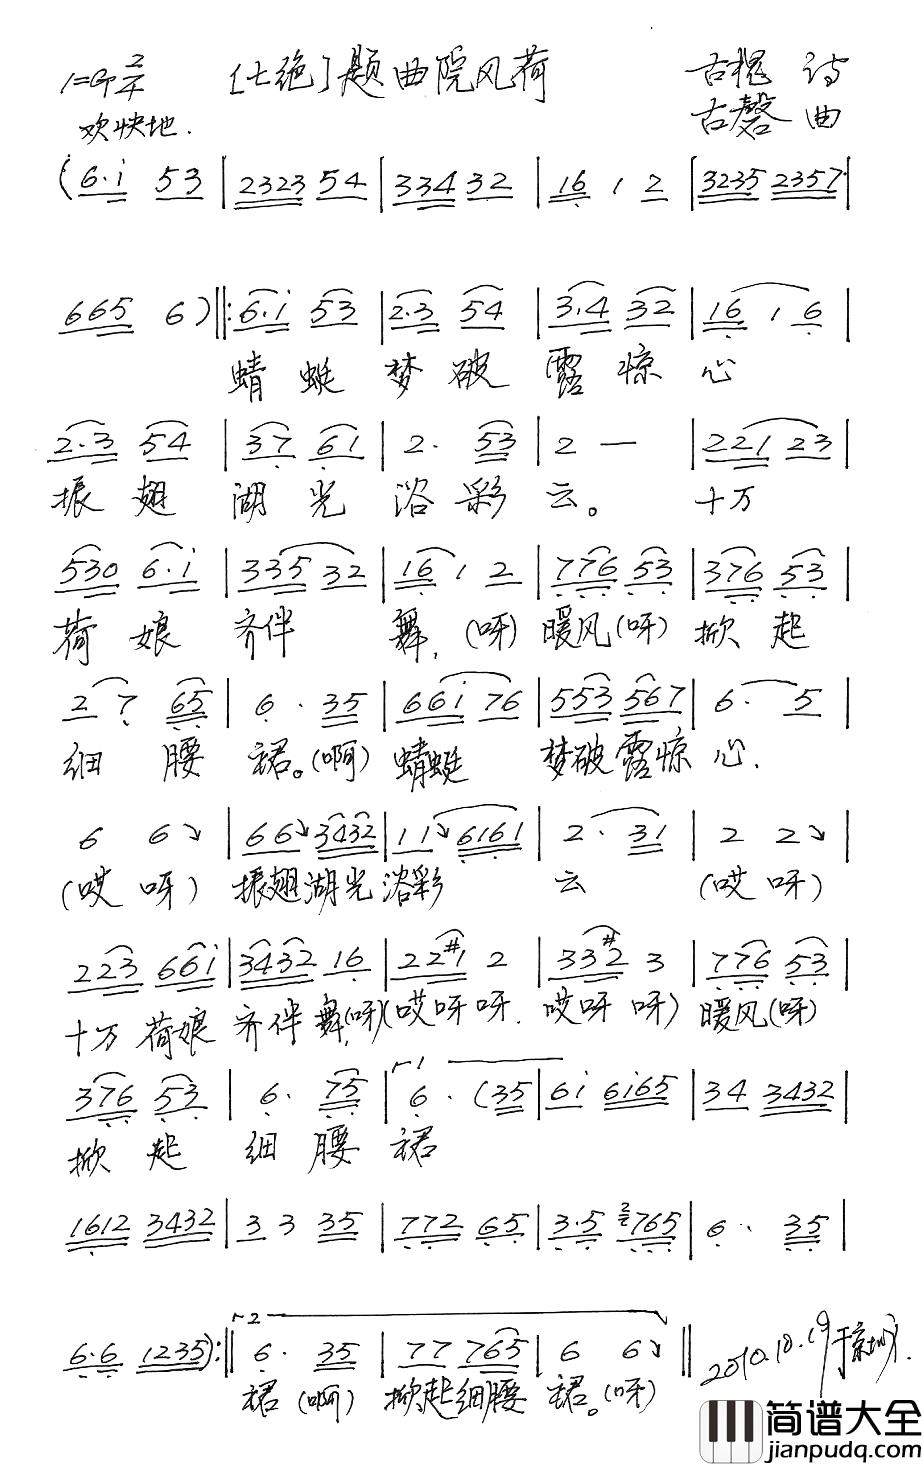 1=G 2/4 [七绝]题曲院风荷 古槐 诗
欢快地. 古磬 曲
(6·i 53 | 2323 54 | 334 32 | 16 1 2 | 3235 2357 |
665 6) ‖: 6·i 53 | 2·3 54 | 3·4 32 | 16 1 6 |
蜻蜓 梦破 露惊 心
2·3 54 | 37 61 | 2· 53 | 2 — | 221 23 |
振翅 湖光 浴彩 云。 十万
530 6·i | 335 32 | 16 1 2 | 776 53 | 376 53 |
荷娘 齐伴 舞,(呀) 暖风(呀) 掀起
2 7 65 | 6· 35 | 66i 76 | 553 567 | 6· 5 |
细腰 裙。(啊) 蜻蜓 梦破露惊 心.
6 6↘ | 66↘ 3432 | 11↘ 6161 | 2· 31 | 2 2↘ |
(哎呀) 振翅湖光 浴彩 云 (哎呀)
223 66i | 3432 16 | 22#1 2 | 33#2 3 | 776 53 |
十万荷娘 齐伴舞,(呀)(哎呀呀. 哎呀呀) 暖风(呀)
376 53 | 6· 75 | 1 6· (35 | 6i 6i65 | 34 3432 |
掀起 细腰 裙
1612 3432 | 3 3 35 | 772 65 | 3·5 2765 | 6· 35 |
6·6 1235) :‖ 2 6· 35 | 77 765 | 6 6↘ ‖ 2010.10.19
裙(啊) 掀起细腰 裙。(呀)
简谱大全
jianpudq.com